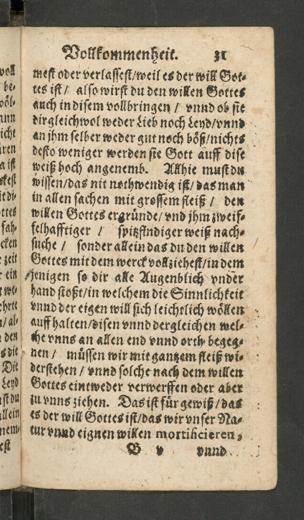 Vollkommenheit. 31
mest oder verlassest/weil es der will Got-
tes ist / also wirst du den willen Gottes
auch in disem vollbringen / vnnd ob sie
dir gleichwol weder Lieb noch Leyd/vnnd
an jhm selber weder gut noch böß/nichts
desto weniger werden sie Gott auff dise
weiß hoch angenemb. Allhie must du
wissen/das nit nothwendig ist/das man
in allen sachen mit grossem fleiß / den
willen Gottes ergründe/vnd jhm zweif-
felhafftiger / spitzfindiger weiß nach-
suche / sonder allein das du den willen
Gottes mit dem werck vollziehest/in dem
jenigen so dir alle Augenblich vnder
hand stoßt/in welchem die Sinnlichkeit
vnnd der eigen will sich leichtlich wöllen
auff halten/disen vnnd dergleichen wel-
che vnns an allen end vnnd orth begeg-
nen / müssen wir mit gantzem fleiß wi-
derstehen / vnnd solche nach dem willen
Gottes eintweder verwerffen oder aber
zu vnns ziehen. Das ist für gewiß/das
es der will Gottes ist/das wir vnser Na-
tur vnnd eignen willen mortificieren,
B v vnnd